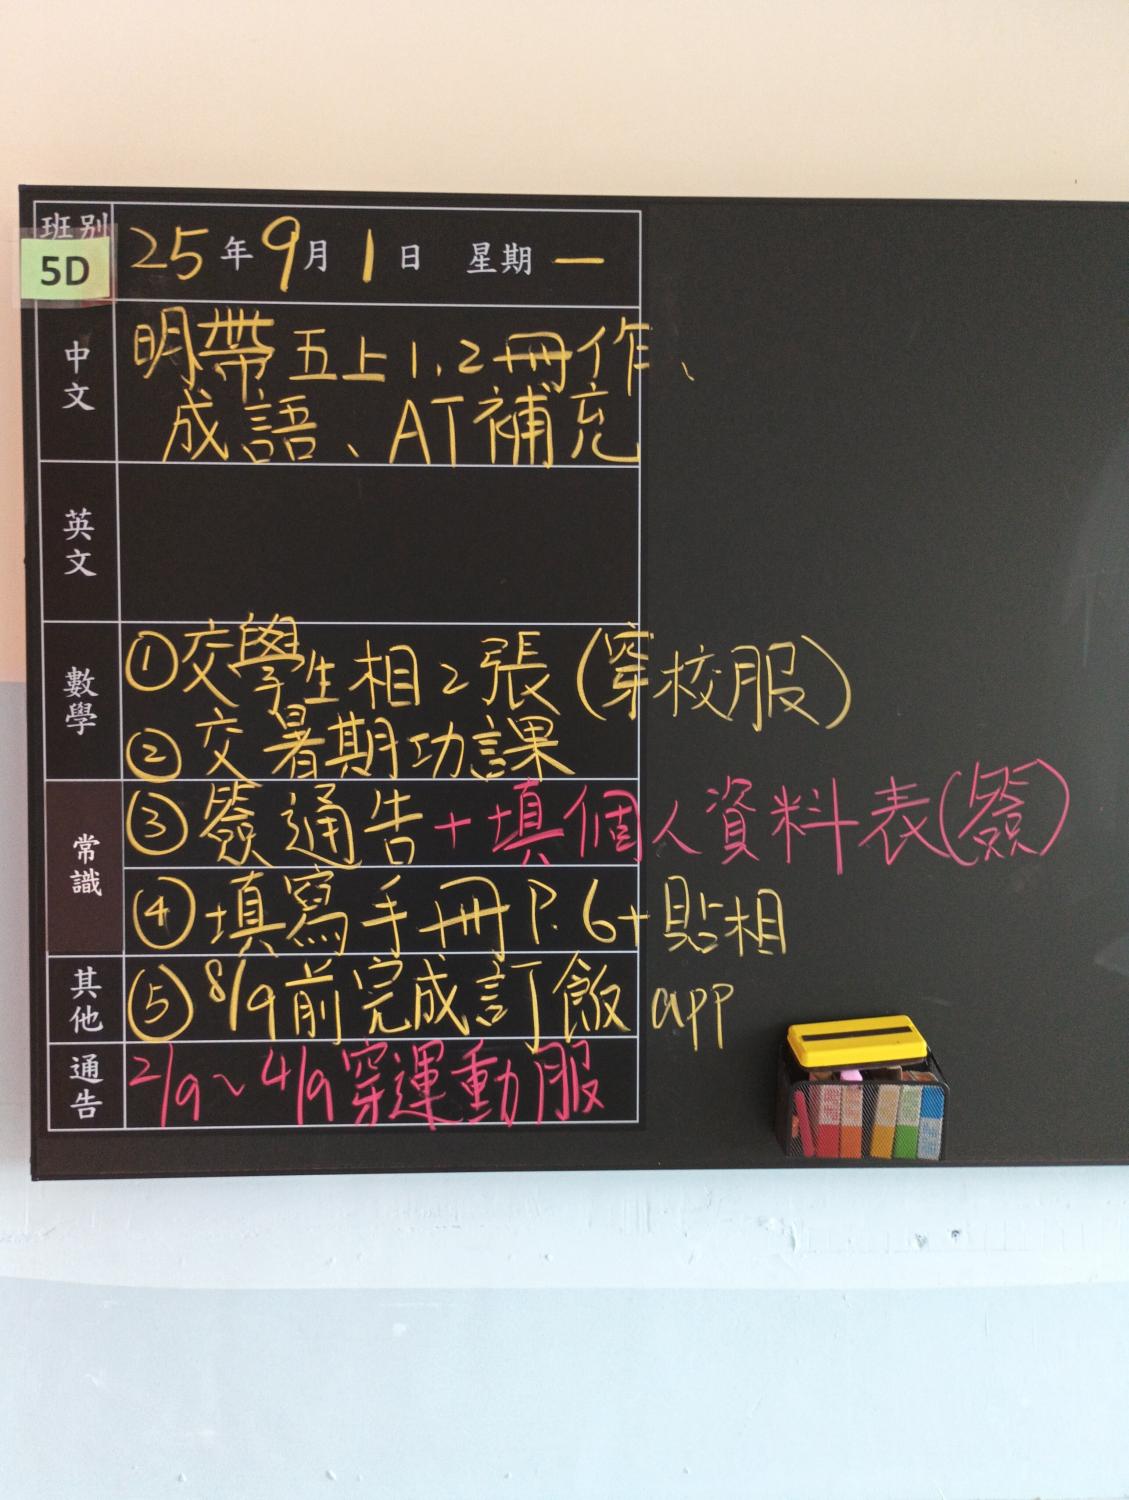 班別
5D
25年9月1日 星期一
中文
明帶五上1.2冊作、
成語、AT補充
英文
數學
①交學生相2張(穿校服)
②交暑期功課
常識
③簽通告+填個人資料表(簽)
④填寫手冊P.6+貼相
其他
⑤8/9前完成訂飯app
通告
2/9~4/9穿運動服